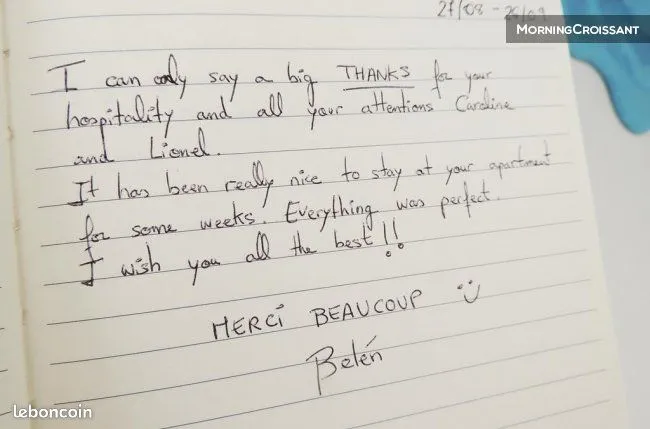 27/08 - 26/09
MORNINGCROISSANT
I can only say a big THANKS for your
hospitality and all your attentions Caroline
and Lionel.
It has been really nice to stay at your apartment
for some weeks. Everything was perfect.
I wish you all the best!!
MERCI BEAUCOUP
Belén
leboncoin